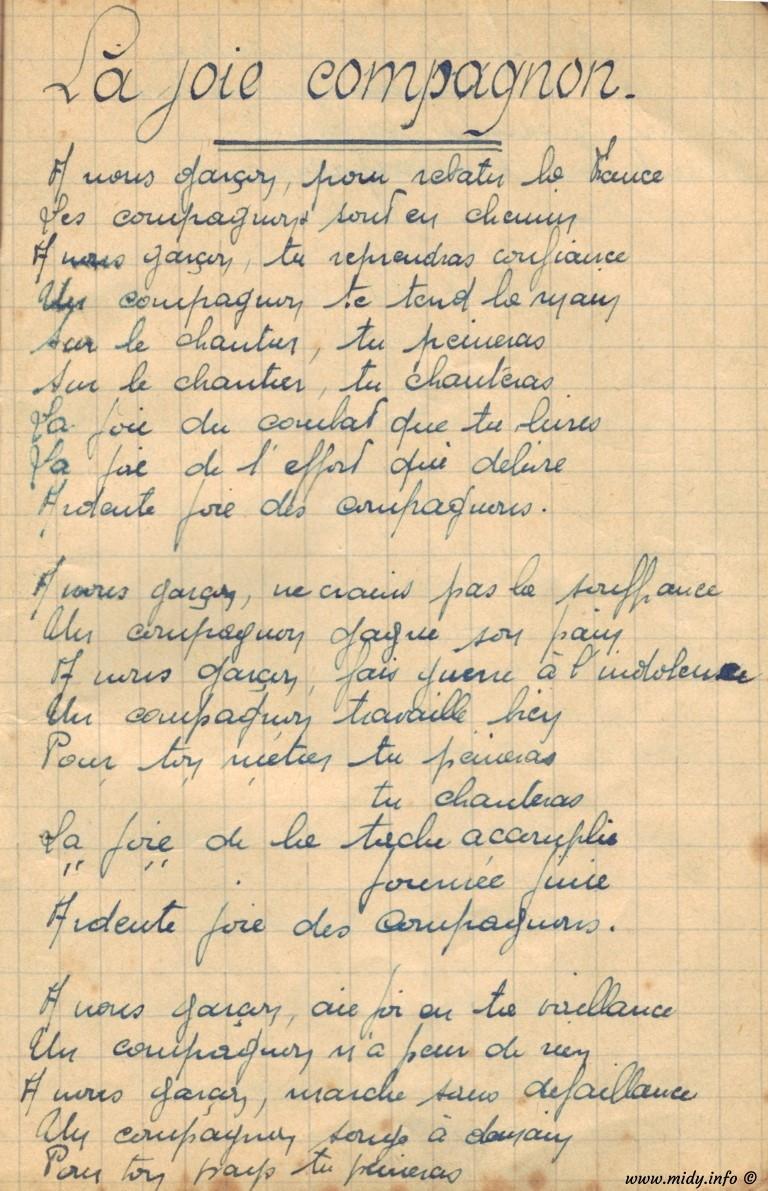 La joie compagnon.
A nous garçon, pour rebatir la France
Les compagnons sont en chemin
A nous garçon, tu reprendras confiance
Un compagnon te tend la main
Sur le chantier, tu peineras
Sur le chantier, tu chanteras
La joie du combat que tu livres
La joie de l'effort qui delivre
Ardente joie des compagnons.
A nous garçon, ne crains pas la souffrance
Un compagnon gagne son pain
A nous garçon, fais guerre à l'indolence
Un compagnon travaille bien
Pour ton métier tu peineras
" " tu chanteras
La joie de la tache accomplie
" " journée finie
Ardente joie des compagnons.
A nous garçon, aie foi en ta vaillance
Un compagnon n'a peur de rien
A nous garçon, marche sans defaillance
Un compagnon songe à demain
Pour ton pays tu peineras
www.midy.info ©